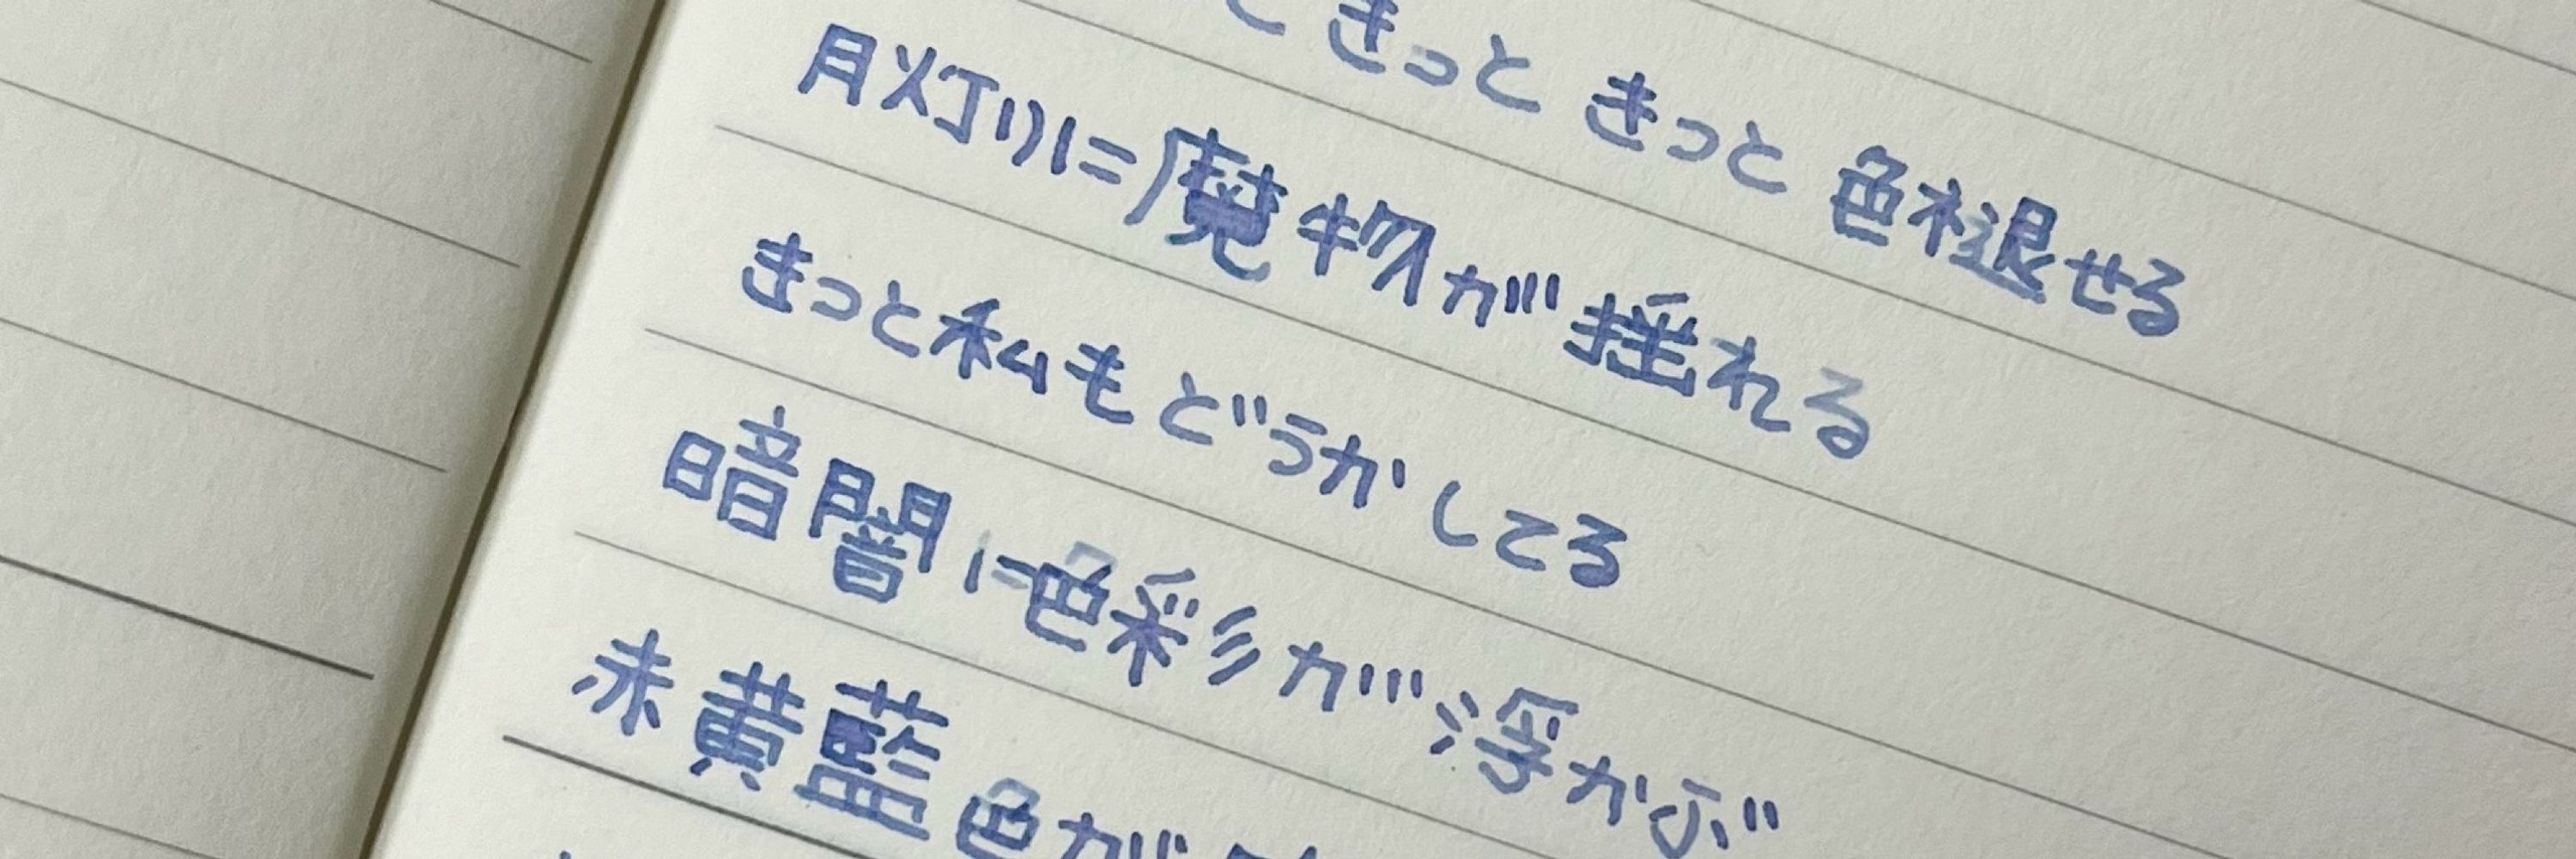 と きっと きっと 色褪せる
月灯りに魔物が揺れる
きっと私もどうかしてる
暗闇に色彩が浮かぶ
赤黄藍色が